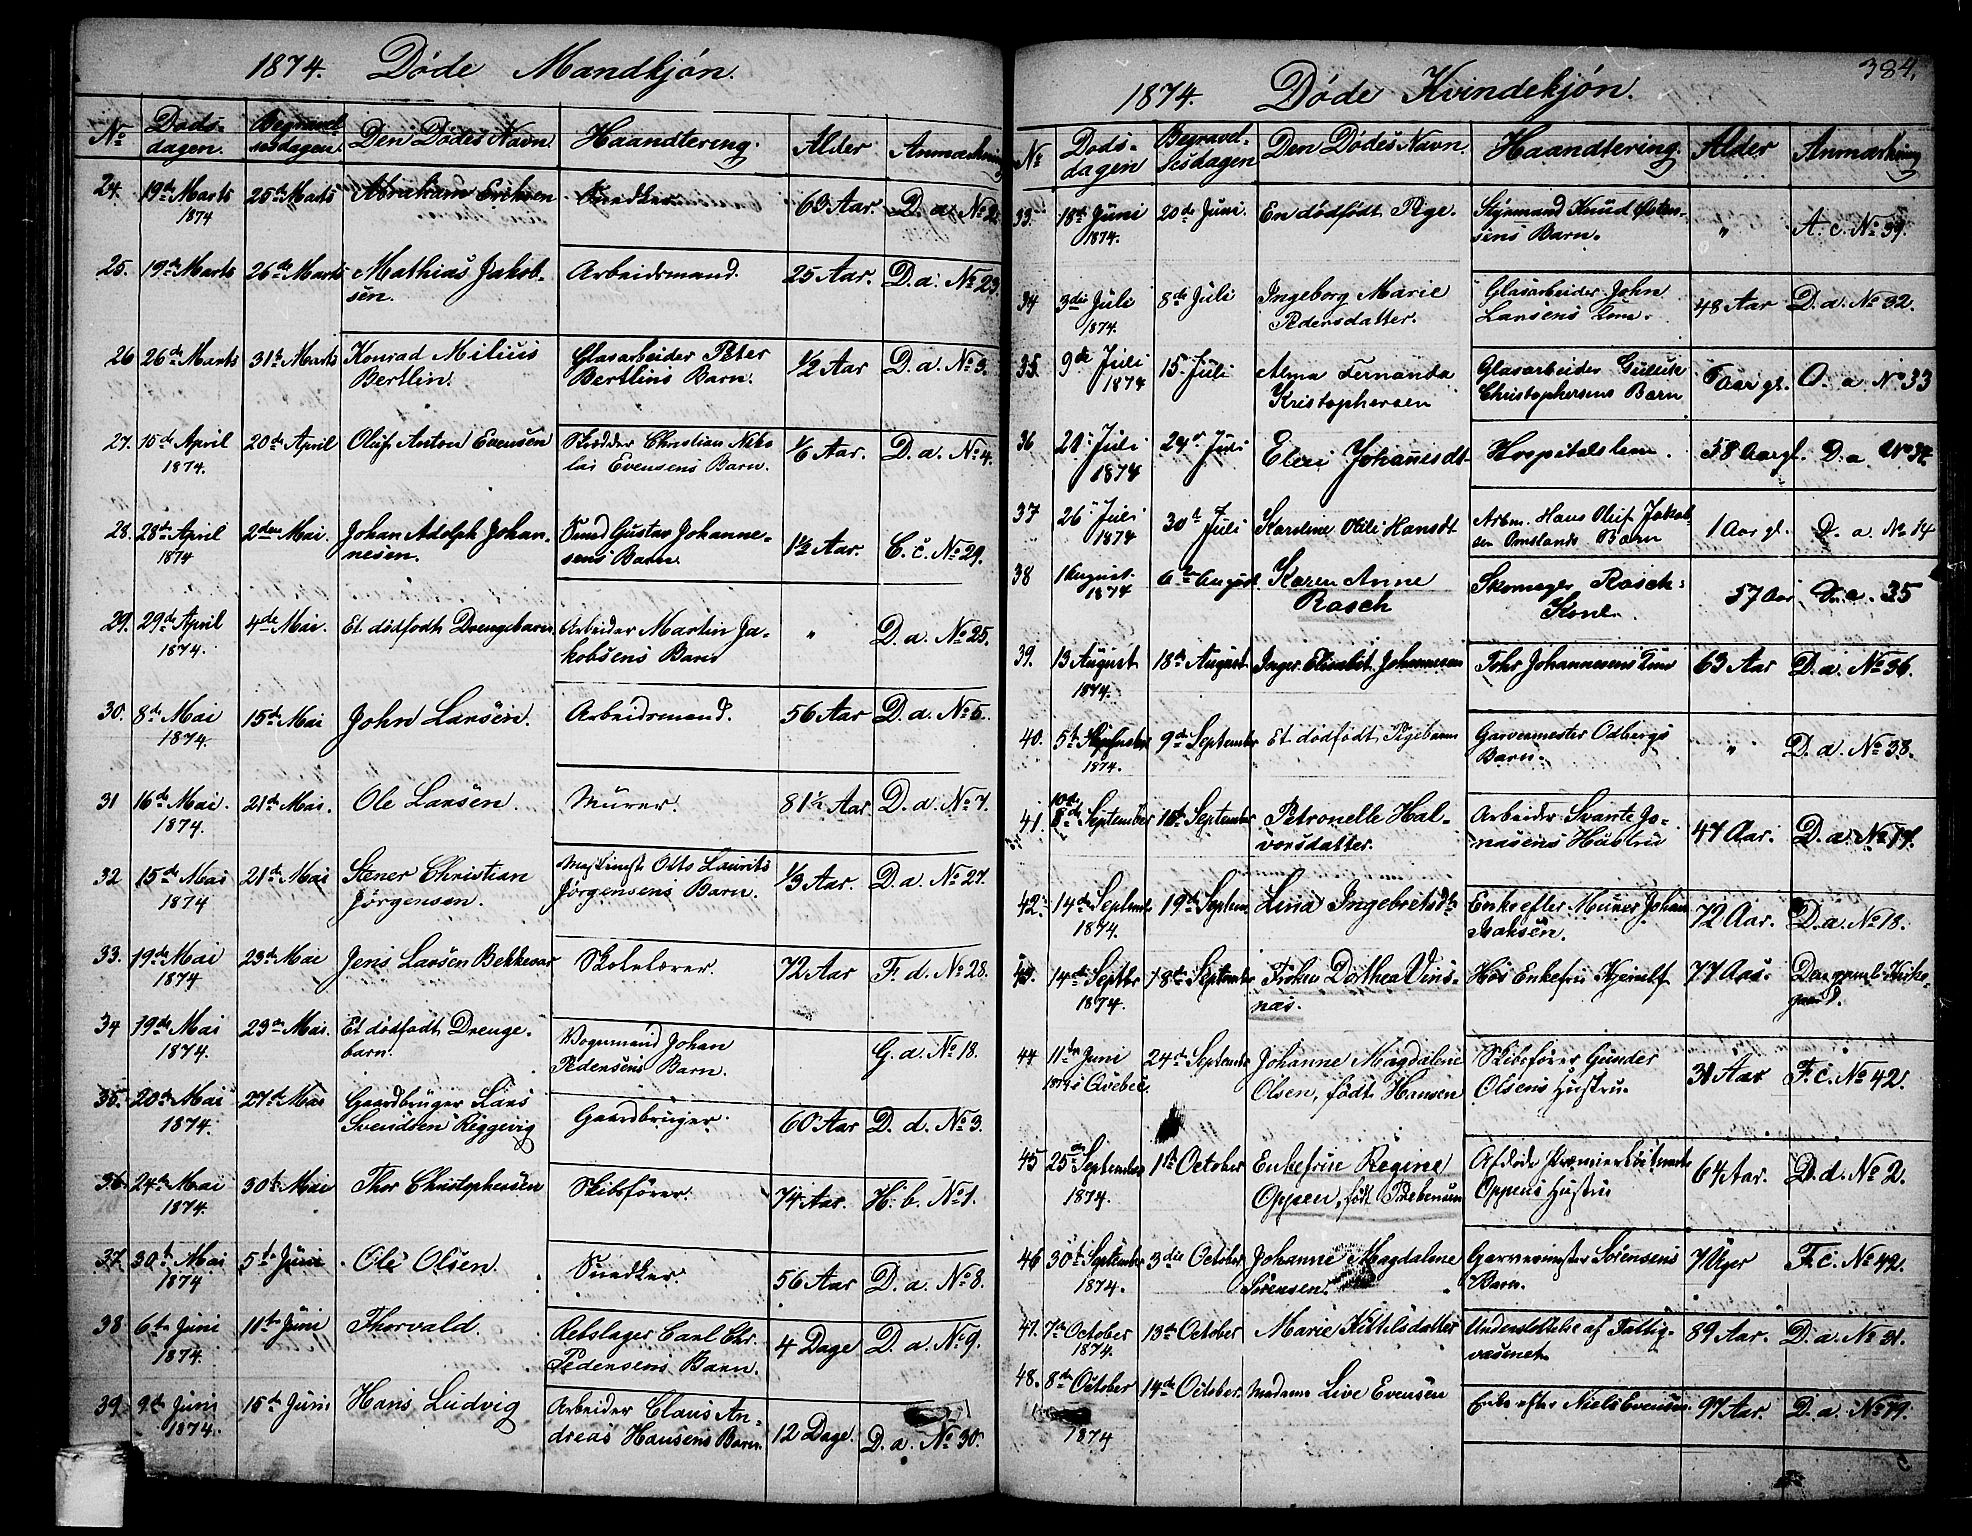 1874. Døde Mandkjøn.
№ Døds-dagen. Begravel-sesdagen. Den Dødes Navn Haandtering. Alder Anmærkning
24. 19de Marts 25de Marts Abraham Eriksen Snedker 63 Aar. D. a. №
1874
25. 19de Marts 26de Marts Mathias Jakob- Arbeidsmand. 25 Aar. D. a. № 23.
sen.
26 26de Marts 31te Marts Konrad Milius Glasarbeider Peter 1/2 Aar D. a. № 3.
Bertlin. Bertlins Barn.
27. 15de April 20de April Oluf Anton Evensen Skrædder Christian Niko 1/6 Aar. D. a. № 4.
1874. lai Evensens Barn.
28. 28de April 2den Mai. Johan Adolph Johan- Smed Gustav Johanne- 1 1/2 Aar. C. c. № 29.
1874 nesen. sens Barn.
29. 29de April 4de Mai. Et dødfødt Drengebarn Arbeider Martin Ja- " D. a. № 25.
1874. kobsens Barn
30. 8de Mai 15de Mai John Larsen. Arbeidsmand. 56 Aar D. a. № 5.
1874.
31 16de Mai. 21de Mai. Ole Larsen. Murer. 81 1/2 Aar. D. a. № 7.
1874.
32 15de Mai 21de Mai Stener Christian Otto Laurits 1/3 Aar. D. a. № 27.
1874 Jørgensen. Jørgensens Barn.
33. 19de Mai 23de Mai Jens Larsen Bekkevar Skolelærer. 72 Aar F. d. № 28.
1874
34 19de Mai 23de Mai. Et dødfødt Drenge- Vognmand Johan G. d. № 18.
1874. barn. Pedersens Barn.
35. 20de Mai 27de Mai Gaardbruger Lars Gaardbruger. 60 Aar D. d. № 3.
1874. Svendsen Riggevig
36. 24de Mai 30te Mai Thor Christophersen Skibsfører. 74 Aar. H. b. № 1.
1874.
37. 30te Mai 5te Juni Ole Olsen. Snedker. 56 Aar D. a. № 8.
1874
38 6te Juni 11te Juni Thorvald. Rebslager Carl Chr. 4 Dage D. a. № 9.
1874. Pedersens Barn.
39. 9de Juni 15de Juni Hans Ludvig Arbeider Claus An- 12 Dage. D. a. № 30.
1874. dreas Hansens Barn.
384.
1874. Døde Kvindekjøn.
№ Døds-dagen Begravel-sesdagen Den Dødes Navn. Haandtering. Alder Anmærkning
33. 18de Juni 20de Juni. En dødfødt Pige. Styrmand Knud Osten- " A. c. № 39.
1874. sens Barn.
34 3die Juli 8de Juli Ingeborg Marie Glasarbeider John 48 Aar D. a. № 32.
1874. Pedersdatter. Larsens Kone.
35. 9de Juli 15. Juli Alma Fernanda Glasarbeider Gulluk Aar gl. D. a № 33
1874 Kristophersen Christophersens Barn
36 21 Juli 24. Juli Eleri Johannesdt Hospitalslem. 58 Aar gl. D. a. № 34.
1874
37 26 Juli 30te Juli Karoline Otili Hansdt Arbm. Hans Oluf Jakob 1 Aar gl. D. a. № 14
1874 sen Omslands Barn
38 1 August. 6te August Karen Anne Skomager Rasch- 57 Aar D. a. 35
1874 Rasch Kone.
39. 13 August 18de August. Inger Elisabet Johannesen Tohr Johannesens Kone 63 Aar D. a. № 36.
1874.
40. 5te September 9de September Et dødfødt Pigebarn Garvermester Odbergs " D. a. № 38.
1874. Barn.
10de
41. 8de September 16de September Petronelle Hal- Arbeider Svante Jo- 47 Aar. D. a. № 17.
vorsdatter. nasens Hustru
42. 14de Septembr 19de Septem. Lina Ingebretsdt. Enke efter Murer Johan 72 Aar. D. a. № 18.
1874. Isaksen.
43. 14de Septbr 18de September Frøken Dorthea Vins- Hos Enkefru 77 Aar. Den gamle Kirke-
1874. næs. gaard.
44 11te Juni 24de Septembr Johanne Magdalene Skibsfører Gunder 31 Aar F. c. № 42.
1874 i Qvebec Olsen, født Hansen Olsens Hustru
45 25de September 1ste October Enkefrue Regine Afdøde Premierløitnant 64 Aar. D. d. № 2.
1874. Oppen, født Oppens Hustru
46 30te September 3die October Johanne Magdalene Garvermester Sørensens 7 Uger F. c. № 42.
1874. Sørensen. Barn.
47. 7de October 13de October Marie Kittelsdatter Understøttelse af Fattig- 89 Aar. D. a. № 31.
1874. væsenet.
48. 8de October 14de October. Madame Live Evensen Enke efter Niels Evensen 97 Aar. D. a. № 19.
1874